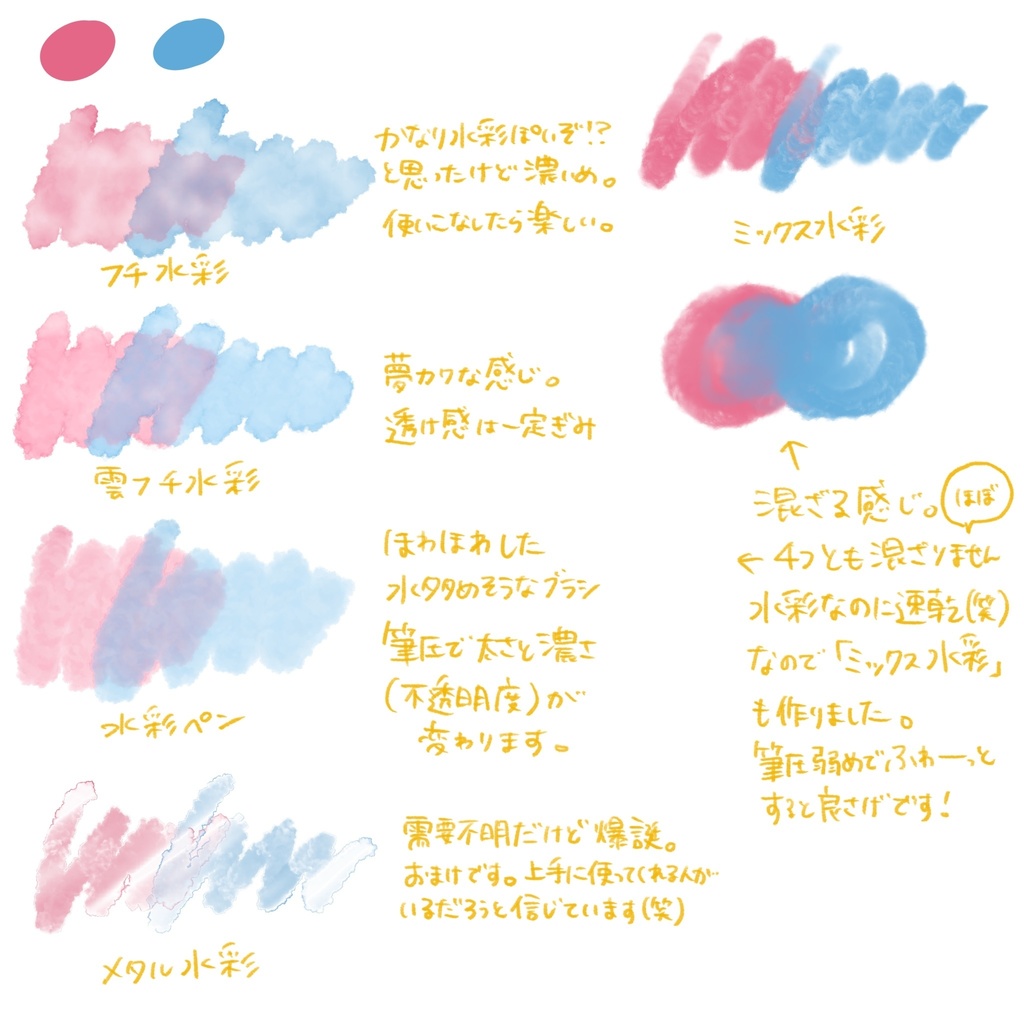 かなり水彩ぽいぞ!?
と思ったけど濃いめ。
使いこなしたら楽しい。
フチ水彩
夢カワな感じ。
透け感は一定ぎみ
雲フチ水彩
ほわほわした
水多めそうなブラシ
筆圧で太さと濃さ
(不透明度)が
変わります。
水彩ペン
需要不明だけど爆誕。
おまけです。上手に使ってくれる人が…
いるだろうと信じています(笑)
メタル水彩
ミックス水彩
↑
混ざる感じ。
ほぼ
← 4つとも混ざりません
水彩なのに速乾(笑)
なので「ミックス水彩」
も作りました。
筆圧弱めでふわーっと
すると良さげです!